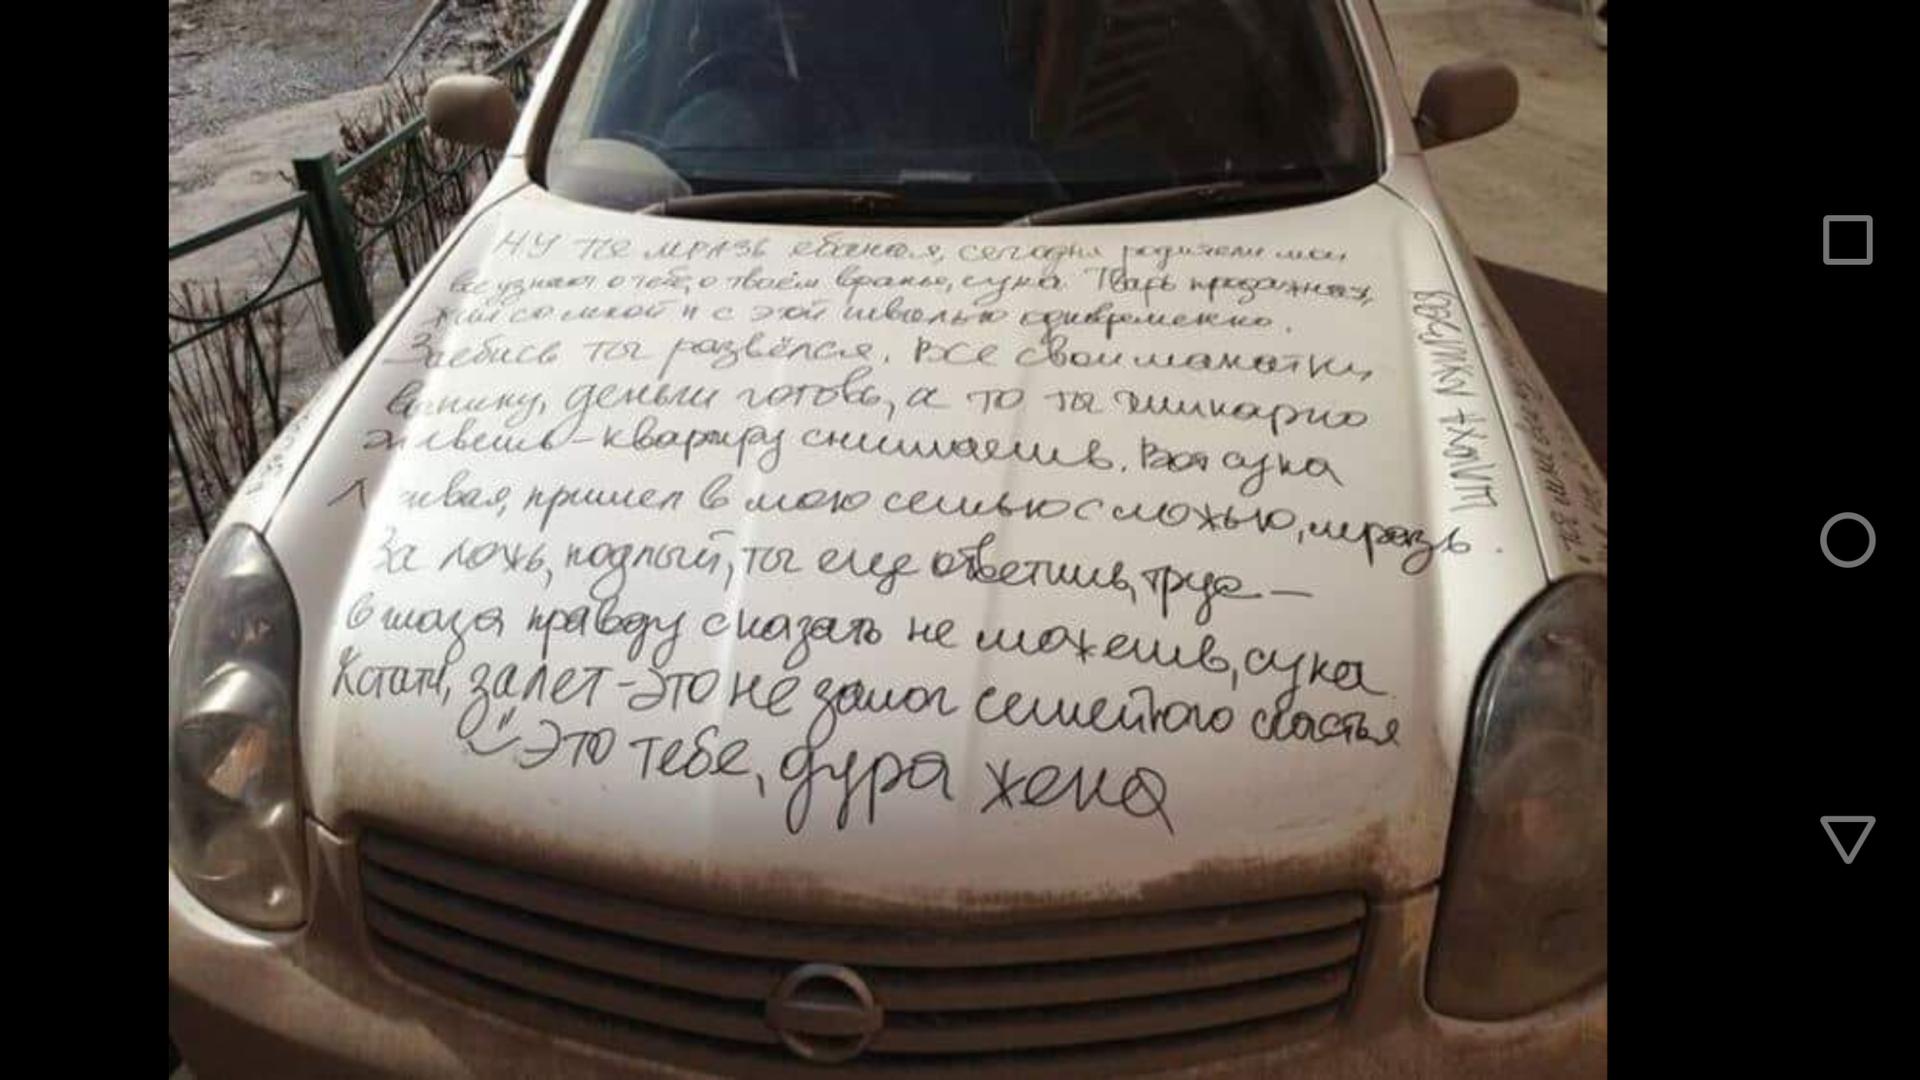 Ну ты мразь ебаная, сегодня родители мои
все узнают о тебе, о твоём вранье, сука. Тварь продажная,
жил со мной и с этой швалью одновременно.
Заебись ты развёлся. Все свои манатки
выкину, деньги готовь, а то ты шикарно
живешь - квартиру снимаешь. Вот сука
лживая, пришел в мою семью с ложью, мразь.
За ложь, подлый, ты еще ответишь, трус —
в глаза правду сказать не можешь, сука
Кстати, залет - это не залог семейного счастья
Это тебе, дура жена